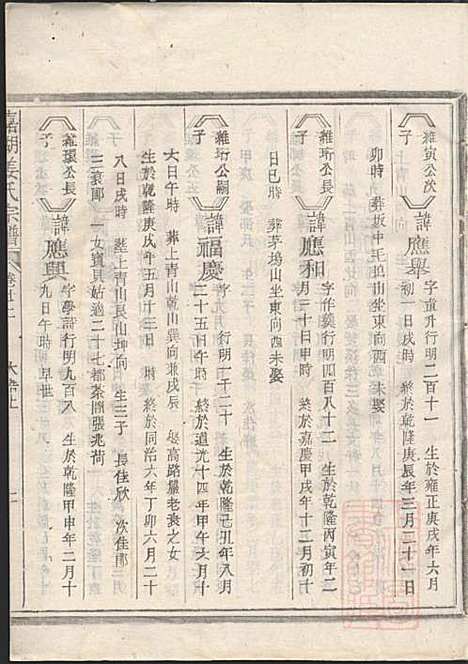 維寅公次子
諱應舉
字童升行明二百十一 生於雍正庚戌年六月
初一日戌時 終於乾隆庚辰年三月二十一日
卯時 葬坂中王塢山坐東向西 未娶
維珩公長子
諱應和
字作羹行明四百八十一 生於乾隆丙寅年二
月二十日時 終於嘉慶甲戌年十二月初十
日巳時 葬茅塢山坐東向西 未娶
維珩公嗣子
諱福慶
字 行明一千二十 生於乾隆己丑年八月
二十五日午時 終於道光十四年甲午六月十
六日午時 葬上青山乾山巽向兼戌辰 娶高路嚴老裒之女
生於乾隆庚戌年五月十三日 時 終於同治六年丁卯六月二十
八日戌時 葬上青山艮山坤向 生三子 長佳欣 次佳郎
三袁郎 一女寶貝姑適二十七都茶園張兆荷
維環公長子
諱應興
字學詩行明九百八 生於乾隆甲申年二月十
九日午時 早世
嘉湖姜氏宗譜
卷廿二